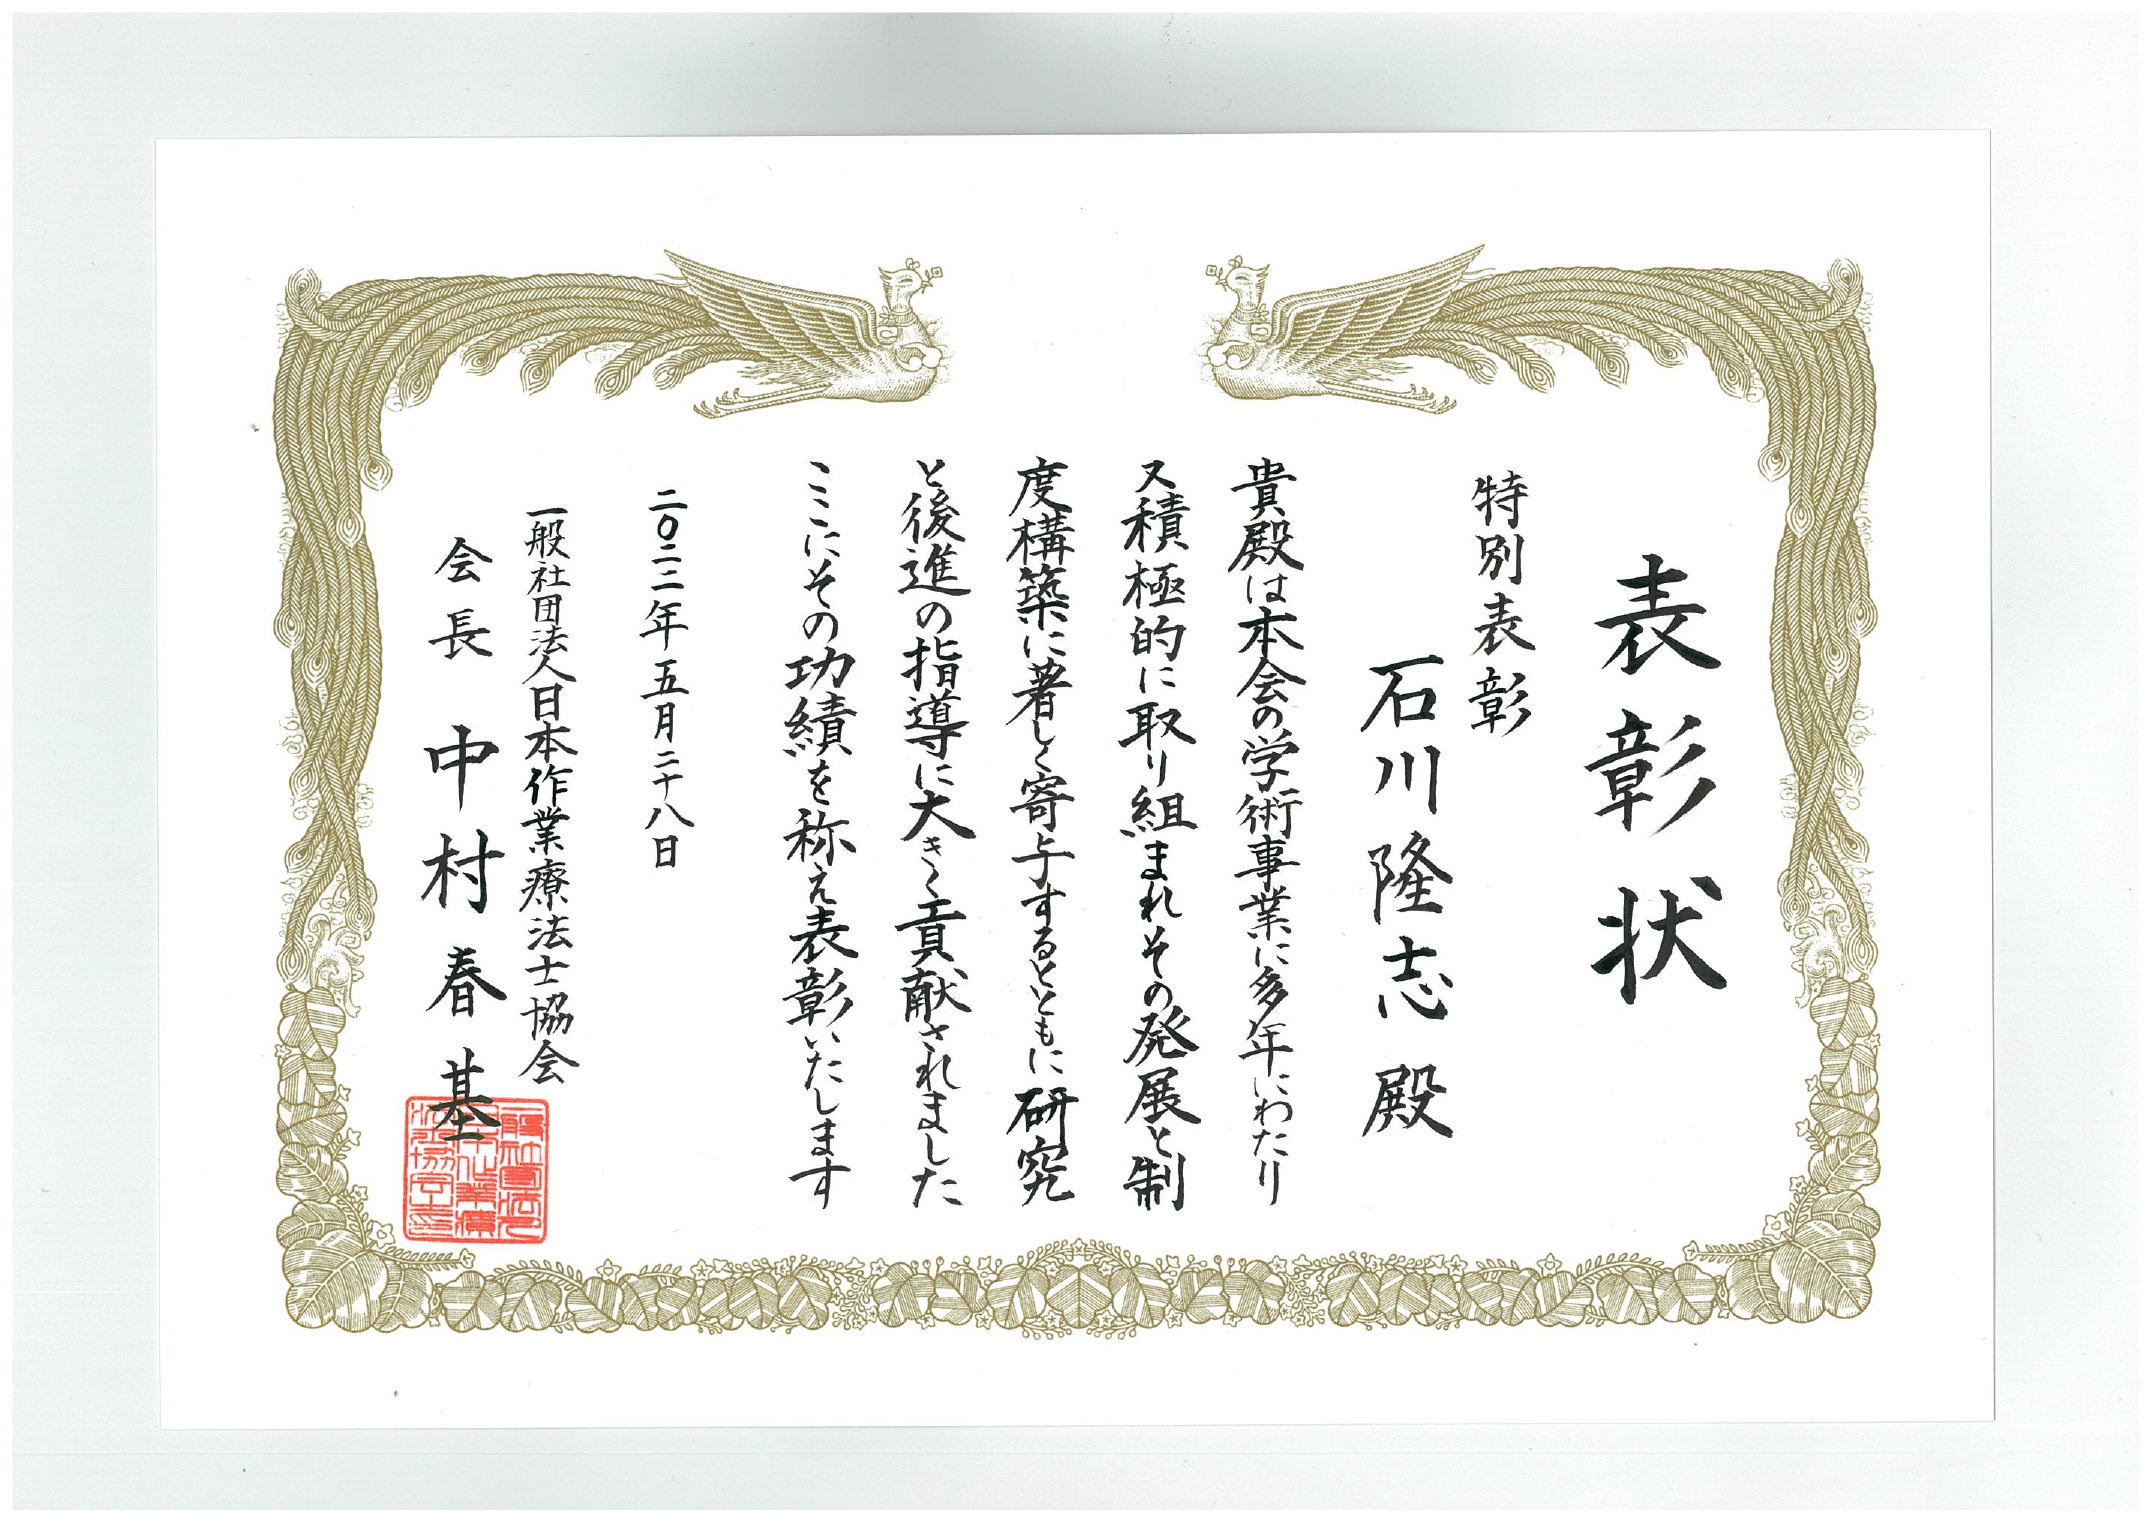 表彰状
特別表彰
石川隆志 殿
貴殿は本会の学術事業に多年にわたり
又積極的に取り組まれその発展と制
度構築に著しく寄与するとともに研究
と後進の指導に大きく貢献されました
ここにその功績を称え表彰いたします
二〇二二年五月二十八日
一般社団法人日本作業療法士協会
会長 中村春基